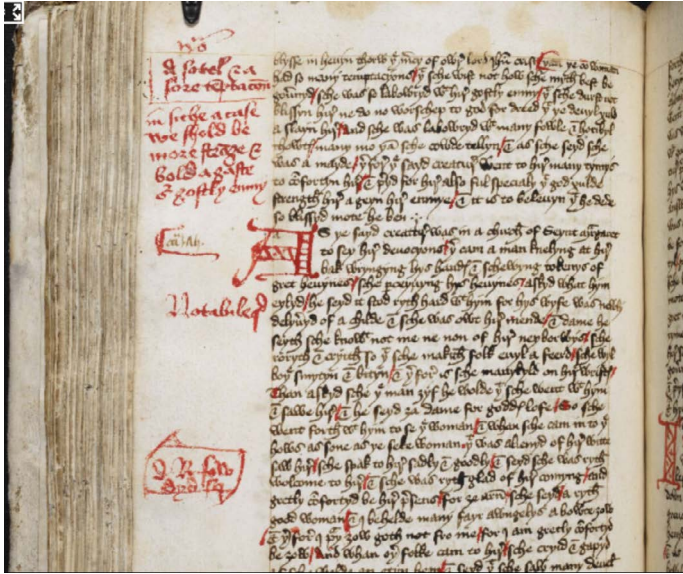 A sotel & a
sore temtacion
in siche a case
we shold be
more strange &
bold a gaste
owr gostly enmy
Notabile
blysse in heuyn thorw þe mcy of owyr lord ihu crist Than þe o woman
had so many temptacyons þt sche wist not how sche myth best be
gouernyd sche was so labowryd wt hyr gostly enmy þt sche durst not
blissyn hir ne do no worschep to god for dreed þt þe deuyl xuld
a slayn hir And sche was labowryd wt many fowle & horibyl
thowtys many mo þan sche cowde tellyn & as sche seyd sche
was a mayde þerfor þe sayd creatur went to hir many tymys
to cōfortyn hir & preyd for hir also ful specialy þt god xulde
strength hir a geyn hir enmye & it is to beleuyn þt he dede
so blissyd mote he ben
As þe sayd creatur was in a chirch of Seynt Margarete
to sey hir deuocyons þer cam a man knelyng at hir
bak wryngyng hys handys & schewyng tokenys of
gret heuynes sche perceyuyng hys heuynes askyd what hym
eylyd he seyd it stod ryth hard wt hym for hys wyfe was newly
delyueryd of a childe & sche was owt hir mende & dame he
seyth sche knowyth not me ne non of hir neyborwys sche
roryth & cryith so þt sche makyth folk euyl a feerd sche wyl
boþe smytyn & bityn & þerfor is sche manykyld on hir wristys
Than askyd sche þe man yyf he wolde þt sche went wt hym
& sawe hir & he seyd ȝa dame for goddys lofe So sche
went forth wt hym to se þe woman & whan sche cam in to þe
hows as sone as þe seke woman þt was alienyd of hir witte
saw hir sche spak to hir sadly & goodly & seyd sche was ryth
welcome to hir & sche was ryth glad of hir comyng and
gretly cōfortyd be hir presens for ȝe arn sche seyd a ryth
good woman & I behelde many fayr awngelys a bowte ȝow
& þerfor I prey ȝow goth not fro me for I am gretly cōfortyd
be ȝow And whan oþer folke cam to hir sche cryid & gapyd